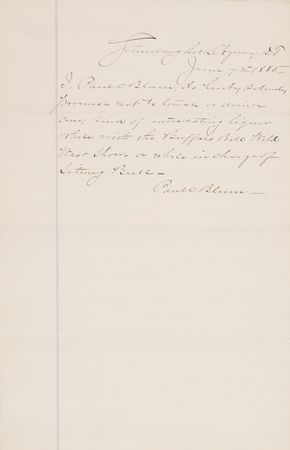 Standing Rock Agency D.T.
June 7th 1885
I, Paul C Blum, do hereby solemnly
promise not to touch or drink
any kind of intoxicating liquor
while with the Buffalo Bill Wild
West Show or while in charge of
Sitting Bull —
Paul C Blum —